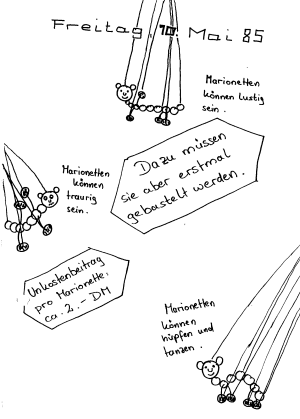 Freitag, 10. Mai 85
Marionetten
können lustig
sein.
Dazu müssen
sie aber erstmal
gebastelt werden.
Marionetten
können
traurig
sein.
Unkostenbeitrag
pro Marionette,
ca. 2.- DM
Marionetten
können
hüpfen und
tanzen.